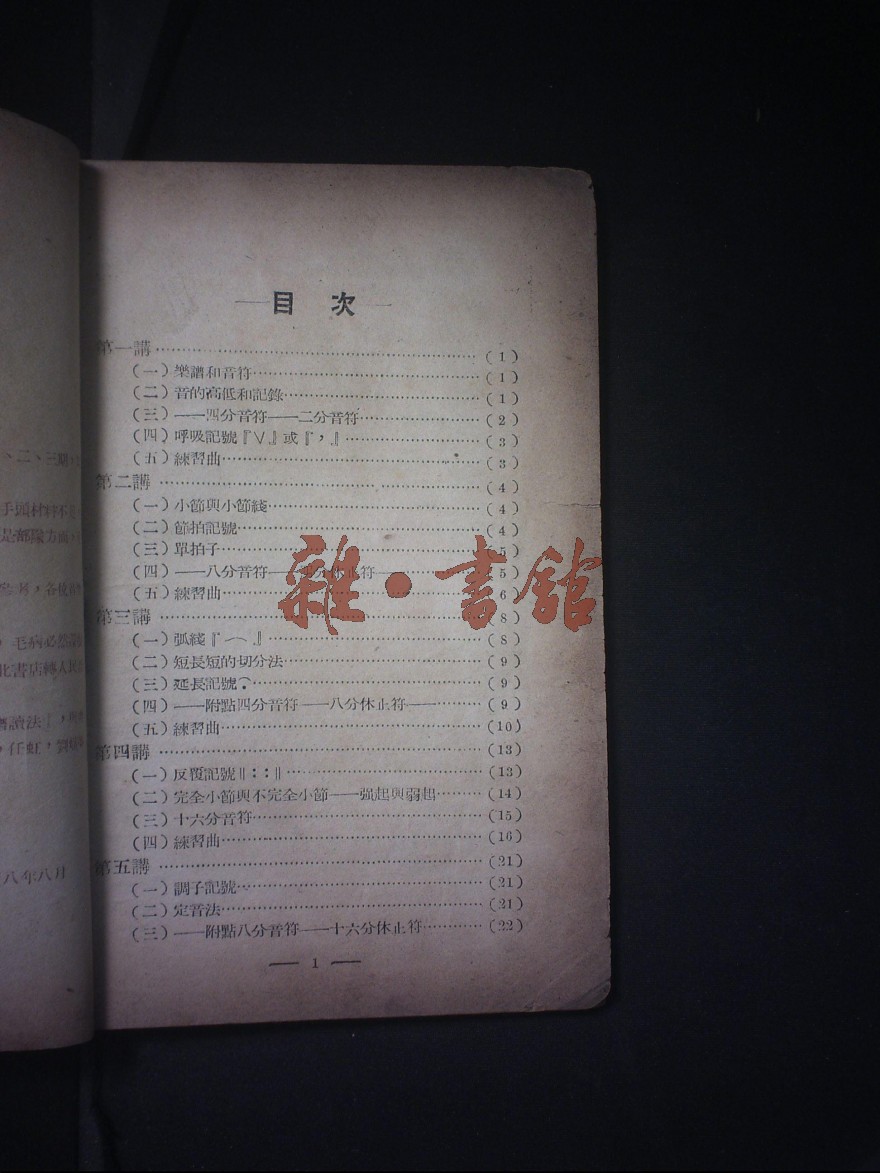 、二、三期,
手頭材料不
是部隊方面,
各後
毛病必然
北書店轉人民
讀法」,
,任虹,劉
八年八月
目 次
第一講………(1)
(一)樂譜和音符………(1)
(二)音的高低和記錄………(1)
(三)——四分音符——二分音符………(2)
(四)呼吸記號『∨』或『,』………(3)
(五)練習曲………(3)
第二講………(4)
(一)小節與小節綫………(4)
(二)節拍記號………(4)
(三)單拍子………5)
(四)——八分音符——分休止符——………(5)
(五)練習曲………6)
第三講………(8)
(一)弧綫『⌒』………(8)
(二)短長短的切分法………(9)
(三)延長記號………(9)
(四)——附點四分音符——八分休止符——………(9)
(五)練習曲………(10)
第四講………(13)
(一)反覆記號‖::‖………(13)
(二)完全小節與不完全小節——强起與弱起………(14)
(三)十六分音符………(15)
(四)練習曲………(16)
第五講………(21)
(一)調子記號………(21)
(二)定音法………(21)
(三)——附點八分音符——十六分休止符………(22)
— 1 —
雜·書館